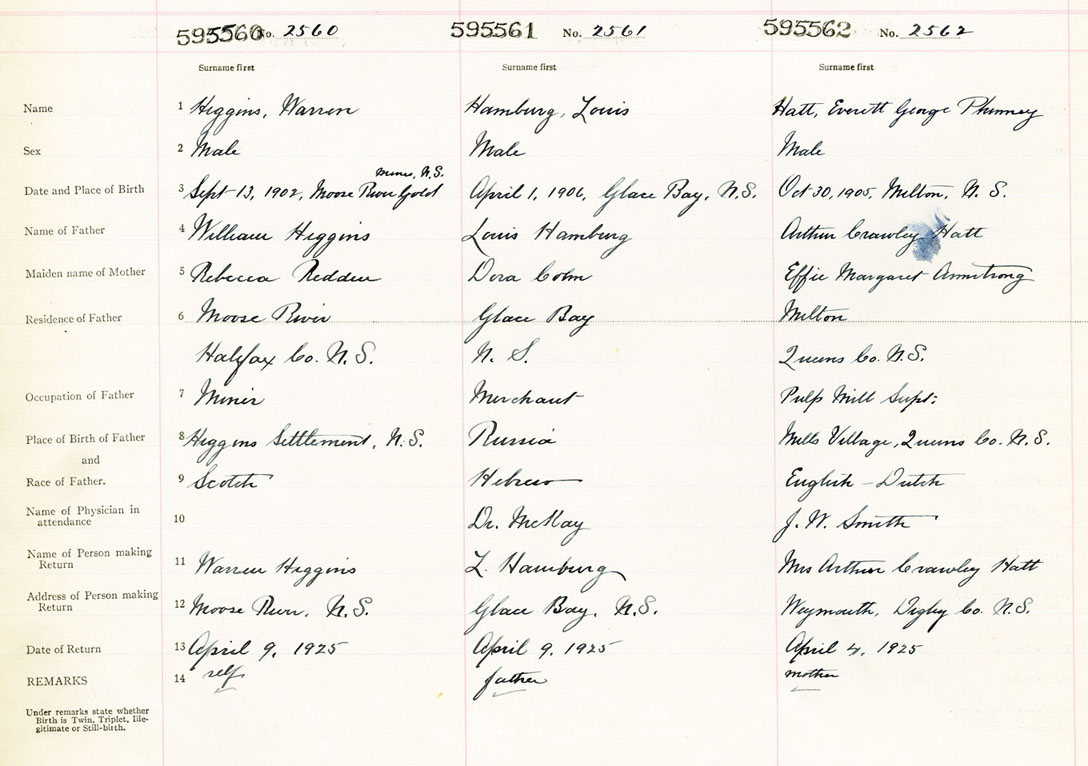 595560 No. 2560 595561 No. 2561 595562 No. 2562
Surname first Surname first Surname first
Name 1 Higgins, Warren Hamburg, Louis Hatt, Everett George Phinney
Sex 2 Male Male Male
Mines, N.S.
Date and Place of Birth 3 Sept 13, 1902, Moose River Gold April 1, 1906, Glace Bay, N.S. Oct 30, 1905, Milton, N.S.
Name of Father 4 William Higgins Louis Hamburg Arthur Crawley Hatt
Maiden name of Mother 5 Rebecca Redden Dora Colm Effie Margaret Armstrong
Residence of Father 6 Moose River Glace Bay Milton
Halifax Co. N.S. N. S. Queens Co. N.S.
Occupation of Father 7 Miner Merchant Pulp Mill Supt.
Place of Birth of Father 8 Higgins Settlement, N.S. Russia Mills Village, Queens Co. N.S.
and
Race of Father. 9 Scotch Hebrew English - Dutch
Name of Physician in
attendance 10 Dr. McKay J. W. Smith
Name of Person making
Return 11 Warren Higgins L. Hamburg Mrs Arthur Crawley Hatt
Address of Person making
Return 12 Moose River, N.S. Glace Bay, N.S. Weymouth, Digby Co. N.S.
Date of Return 13 April 9, 1925 April 9, 1925 April 4, 1925
REMARKS 14 self father mother
Under remarks state whether
Birth is Twin, Triplet, Ille-
gitimate or Still-birth.